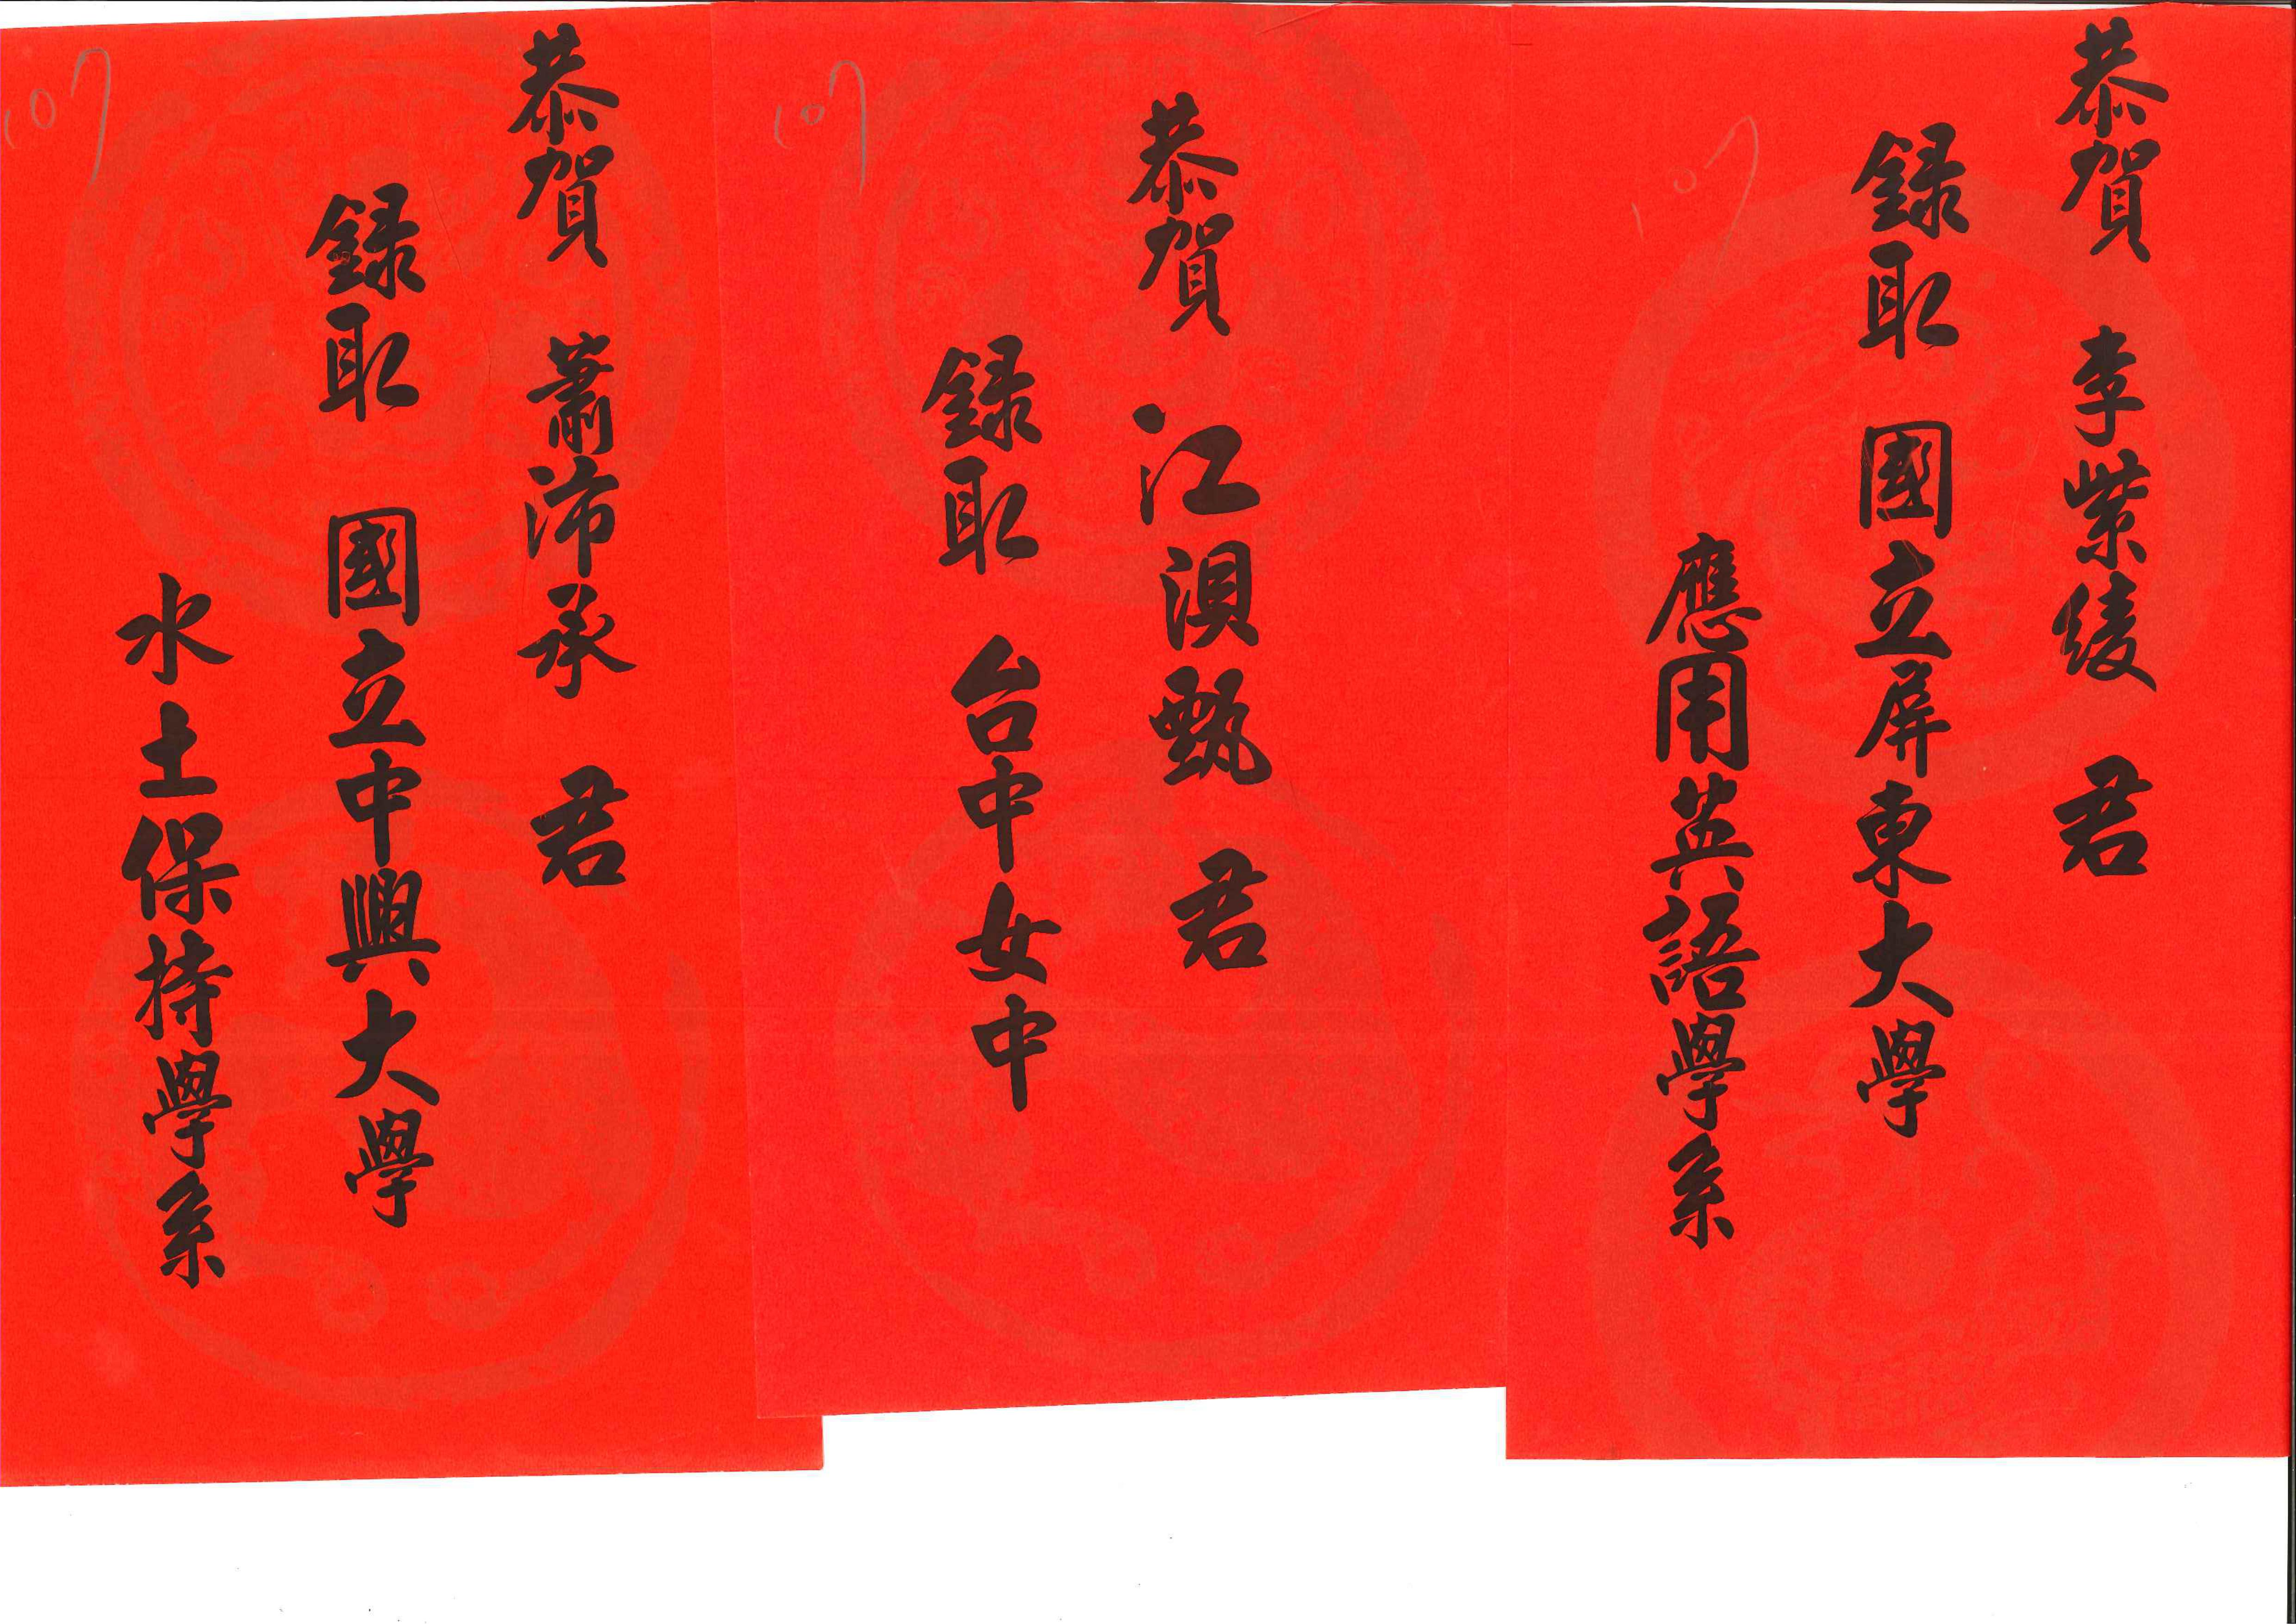 恭賀 李紫綾 君
錄取 國立屏東大學
應用英語學系
107
恭賀 江湨甄 君
錄取 台中女中
107
恭賀 蕭沛承 君
錄取 國立中興大學
水土保持學系
107